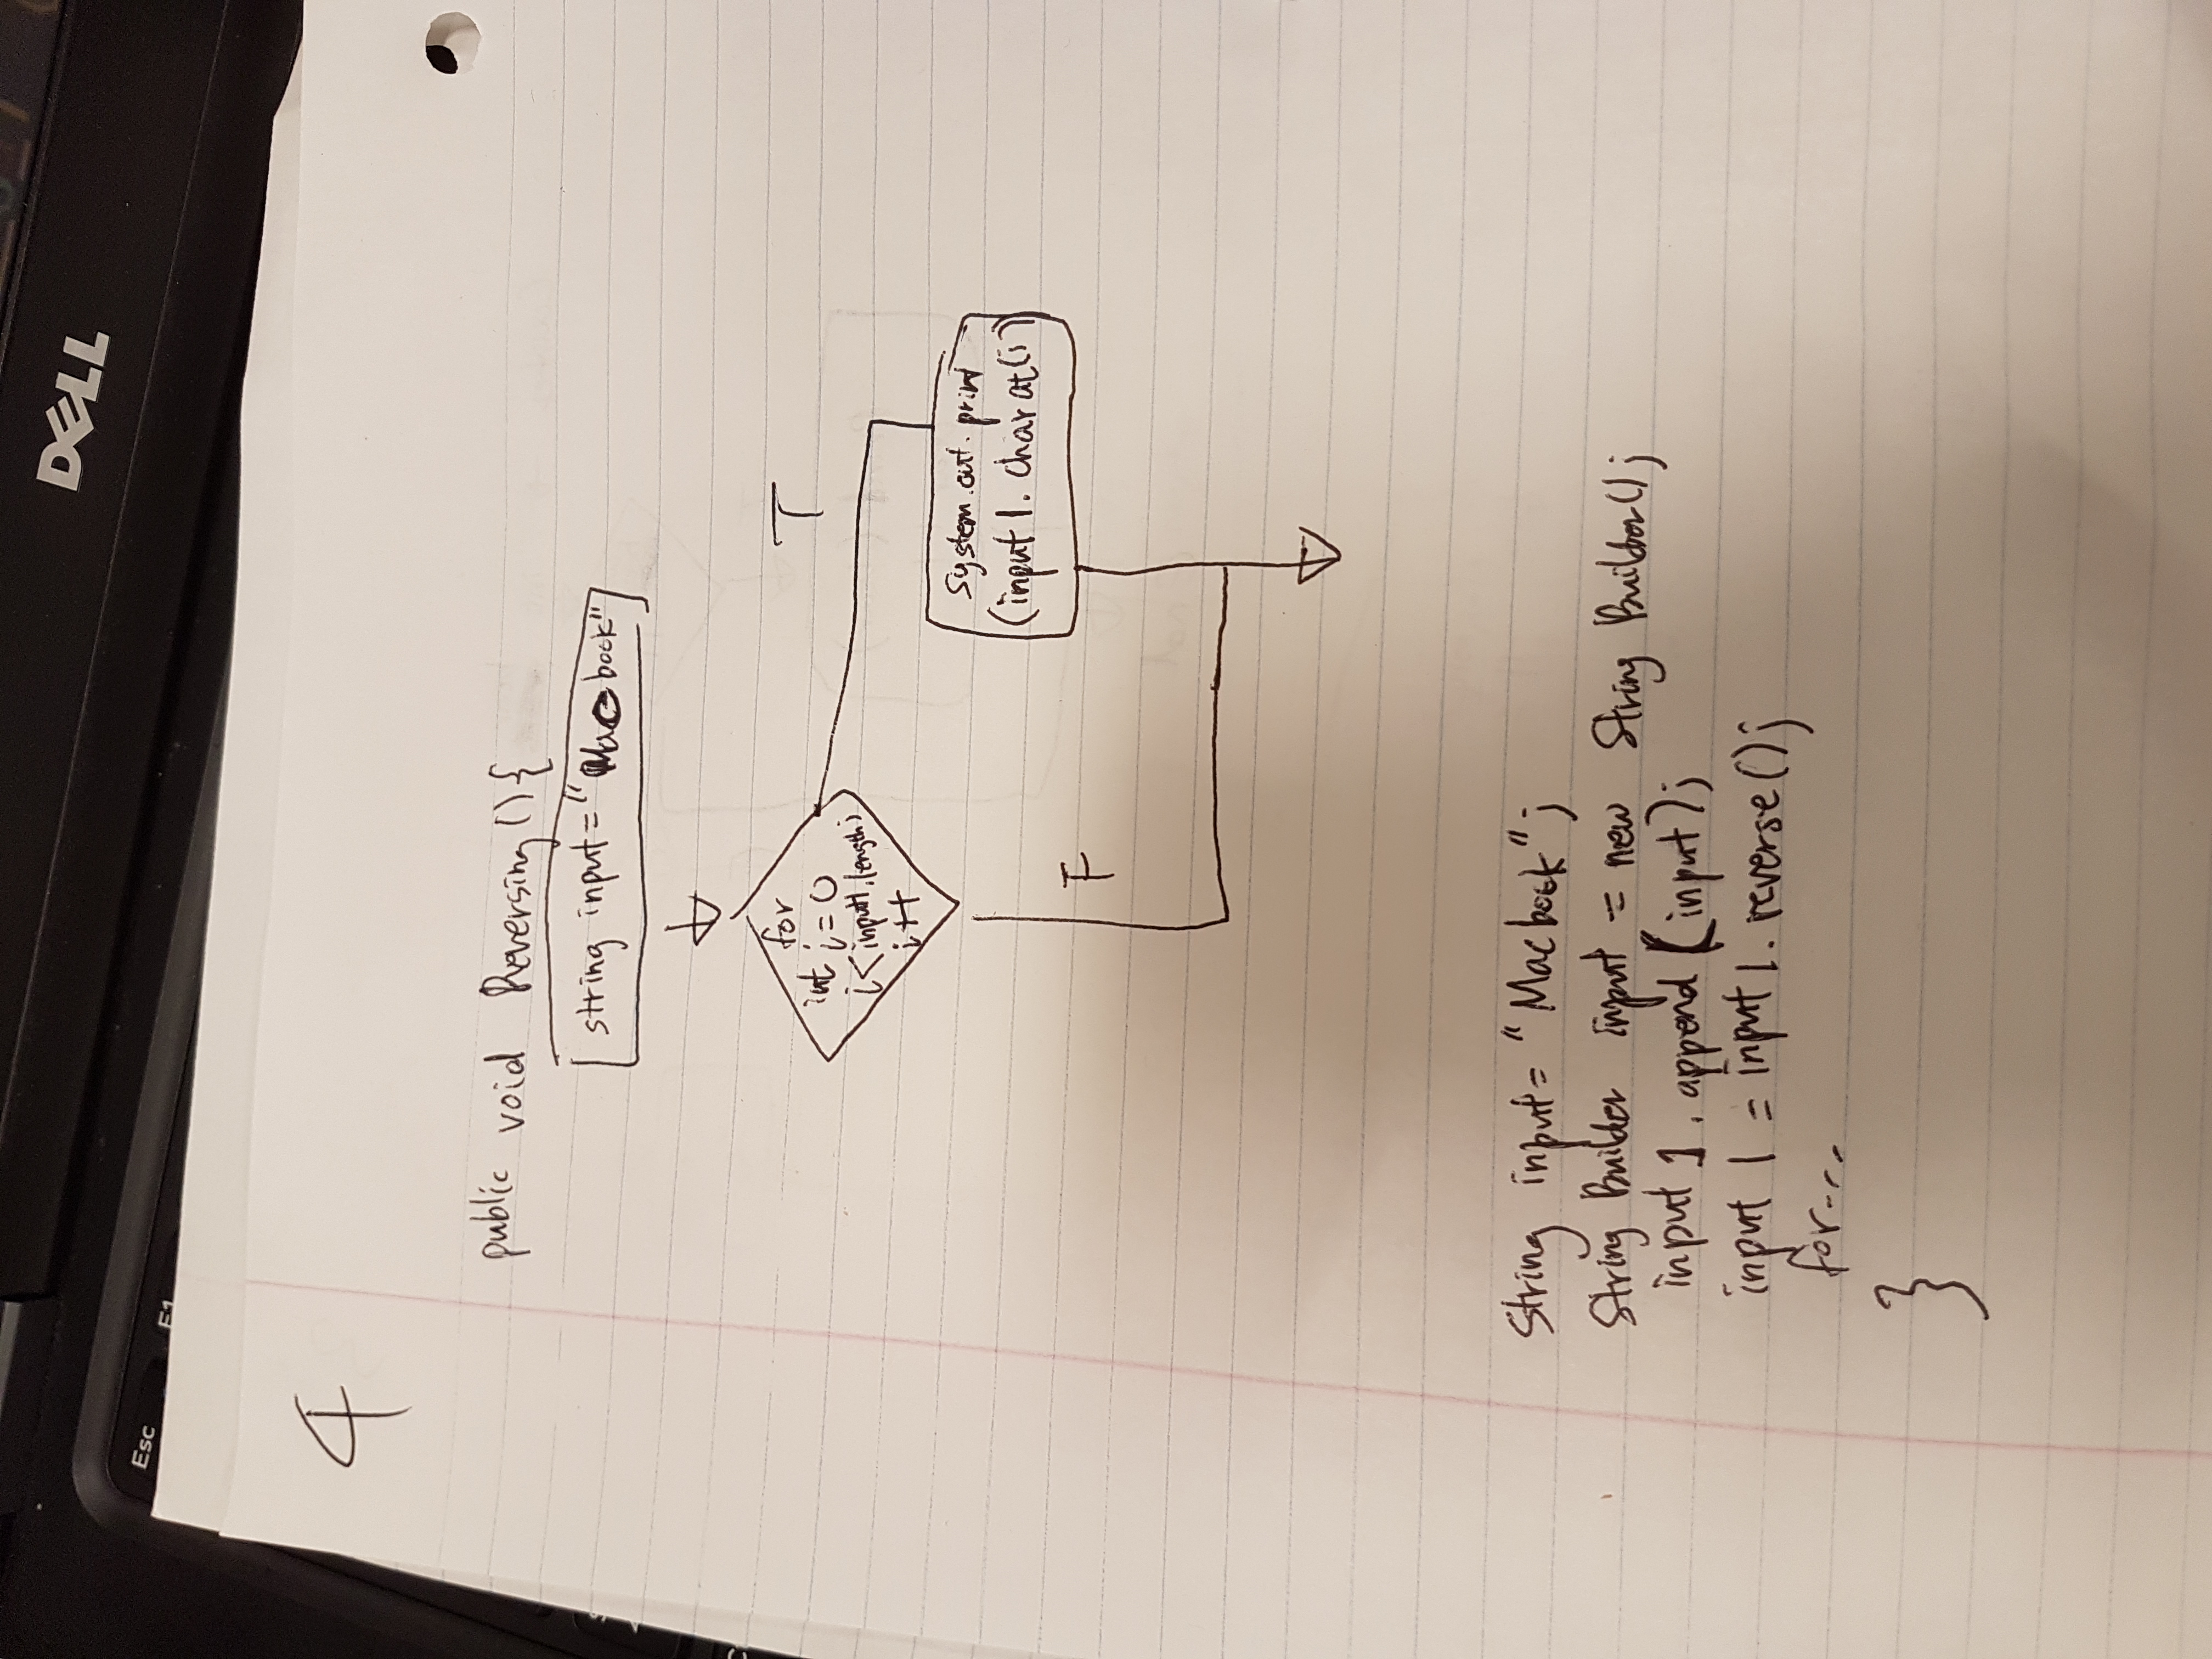 DELL
Esc
F1
4
public void Reversing(){
string input = "Macbook"
for
int i = 0
i < input1.length;
i++
T
System.out.print
(input1.charat(i)
F
String input = "Macbook";
String Builder input = new String Builder();
input 1. append (input);
input 1 = input 1. reverse();
for---
}